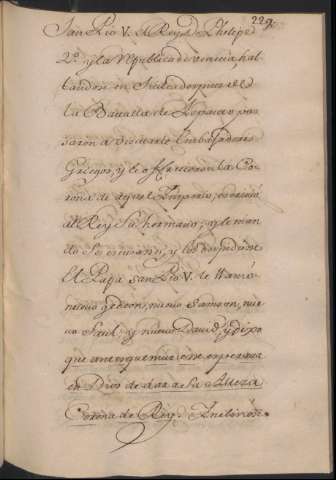 229
San Pio V. el Rey D. Phelipe
2º y la Republica de venecia hal
landose en Sicilia despues de
la Batalla de Lepanto pa
saron a Embajadores
Griegos, y le ofrecieron la Co
rona de aquel Imperio,
al Rey Su hermano, y le man
do Se escusara, y los
El Papa San Pio V. le llamó
nuevo gedeon, nuevo Sanson, nue
vo Saul, y nuevo David, y dijo
que antes que muriese esperava
en Dios de dar a Su Alteza
Corona de Rey.